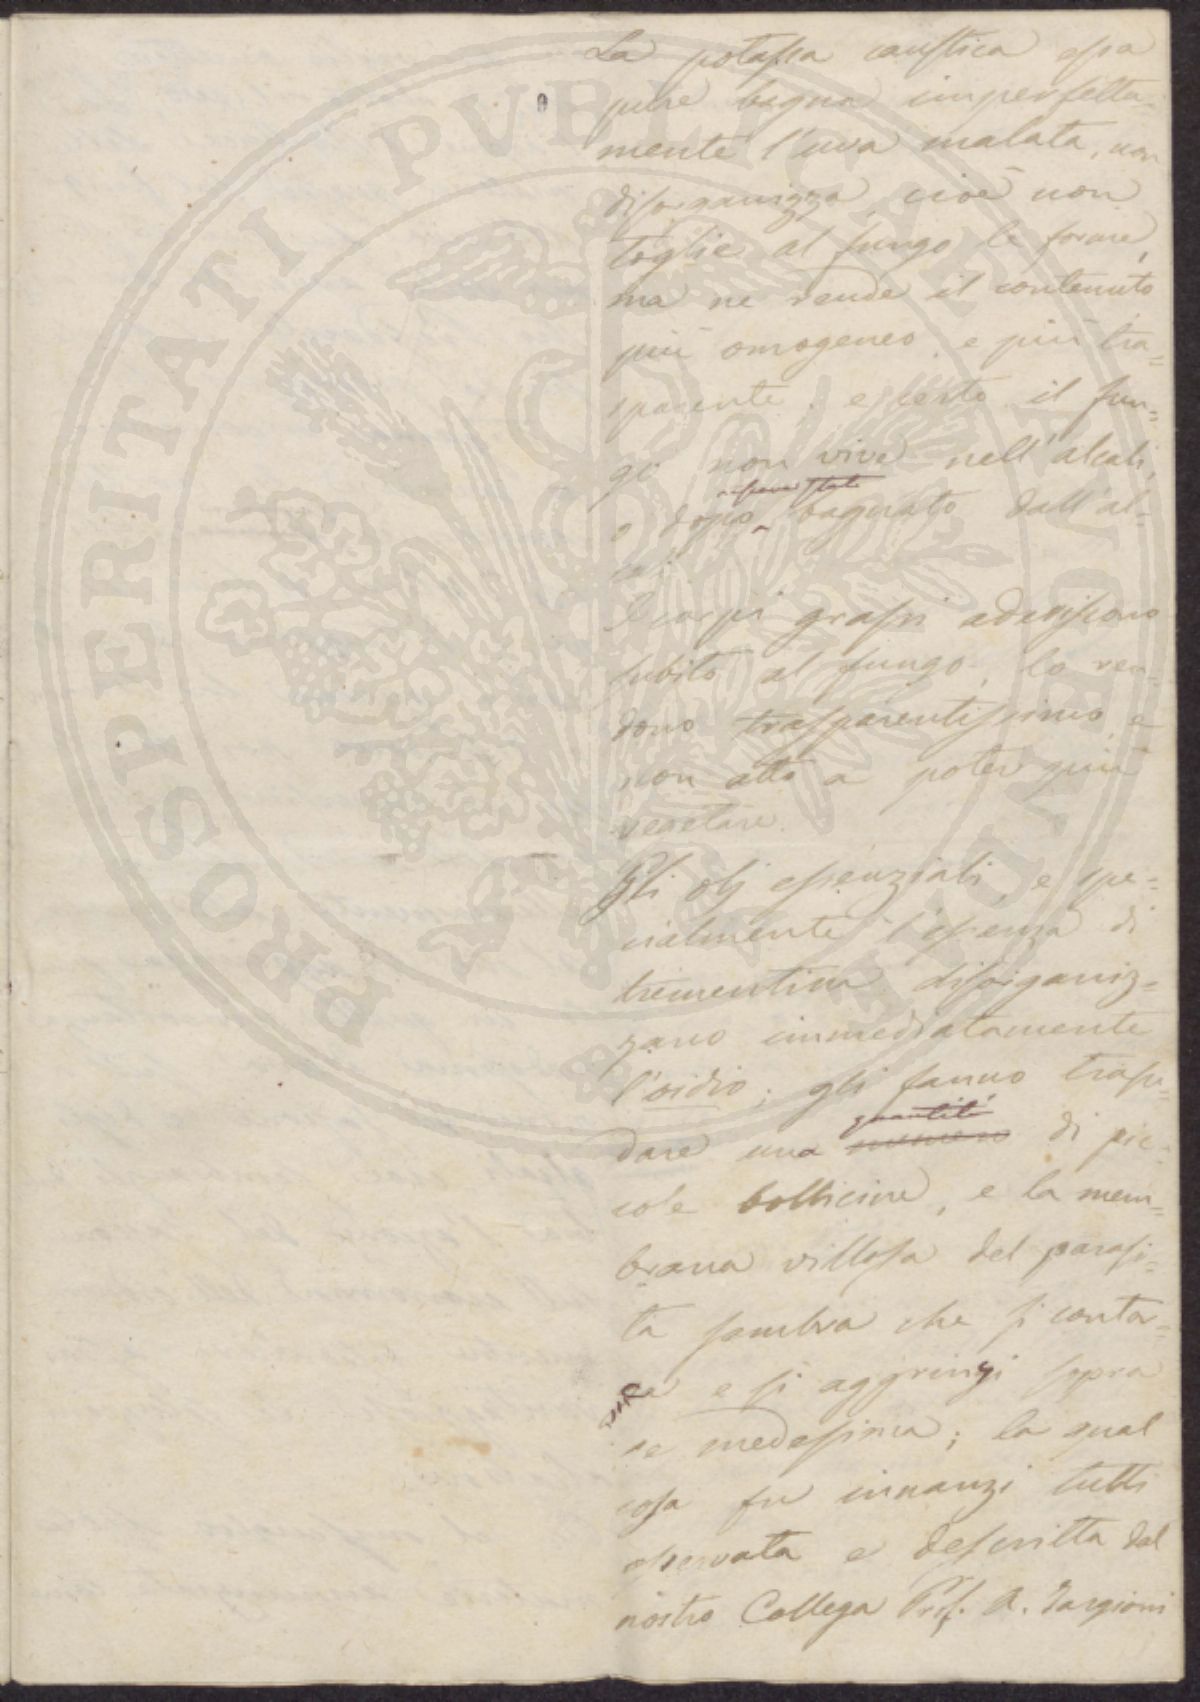 La potassa caustica essa
pure bagna imperfetta-
mente l'uva malata, non
disorganizza, cioè non
toglie al fungo le forme,
ma ne rende il contenuto
più omogeneo, e più tra=
sparente. e certo il fun=
go non vive nell'alcali,
o dopo essere stato bagnato dall'al-
cali.
I corpi grassi aderiscono
subito al fungo, lo ren-
dono trasparentissimo, e
non atto a poter più
vegetare.
Gli olj essenziali, e spe=
cialmente l'essenza di
trementina disorganiz=
zano immediatamente
l'oidio; gli fanno trasu=
dare una quantità numero di pic=
cole bollicine, e la mem=
brana villosa del parasi=
ta sembra che si contor=
ca e si aggrinzi sopra
se medesima; la qual
cosa fu innanzi tutti
osservata e descritta dal
nostro Collega Prof. A. Targioni
PROSPERITATI PVBLICAE AVGENDAE